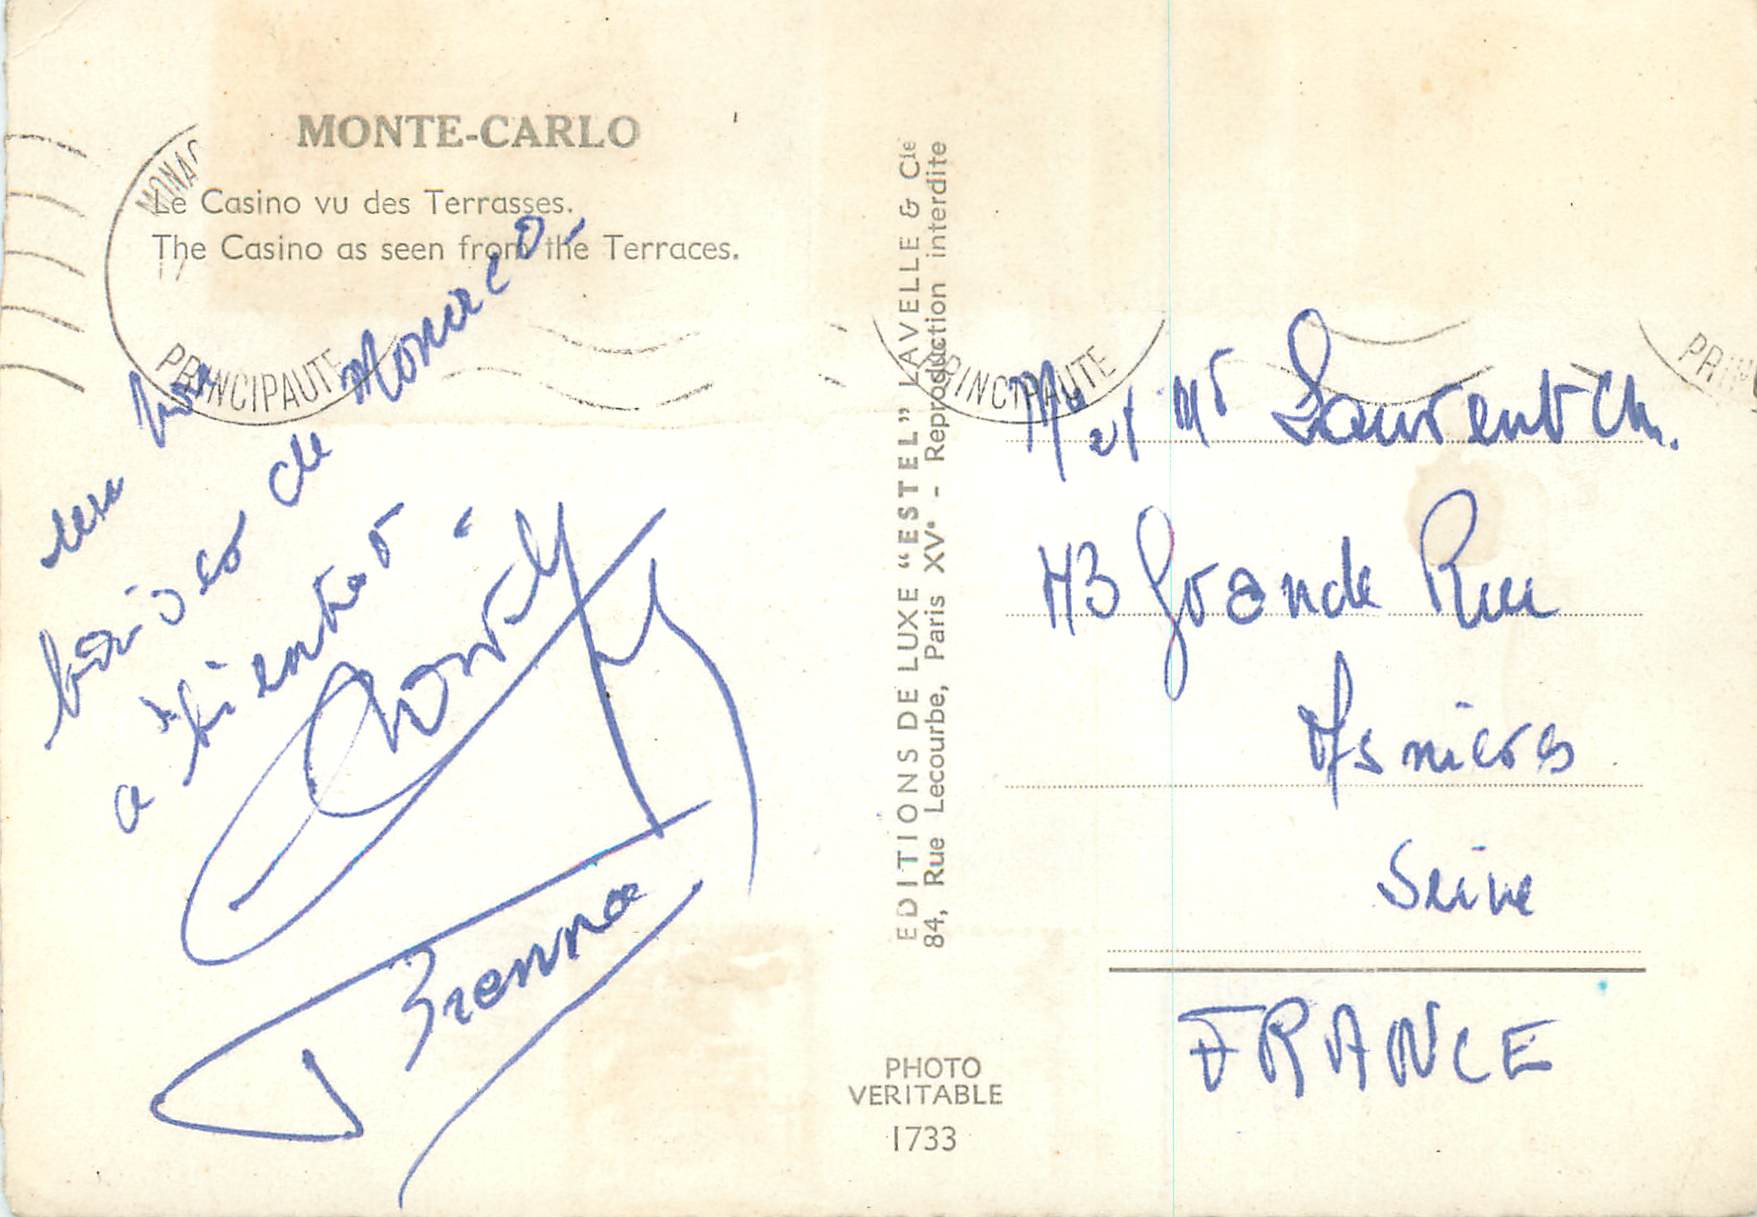 MONTE-CARLO
Le Casino vu des Terrasses.
The Casino as seen from the Terraces.
MONAC
PRINCIPAUTE
de Monaco -
a bientot
EDITIONS DE LUXE "ESTEL" LAVELLE & Cie
84, Rue Lecourbe, Paris XVe - Reproduction interdite
PRINCIPAUTE
PRIN
M et Mr Laurent Ch.
73 Grande Rue
Asnieres
Seine
FRANCE
PHOTO
VERITABLE
1733